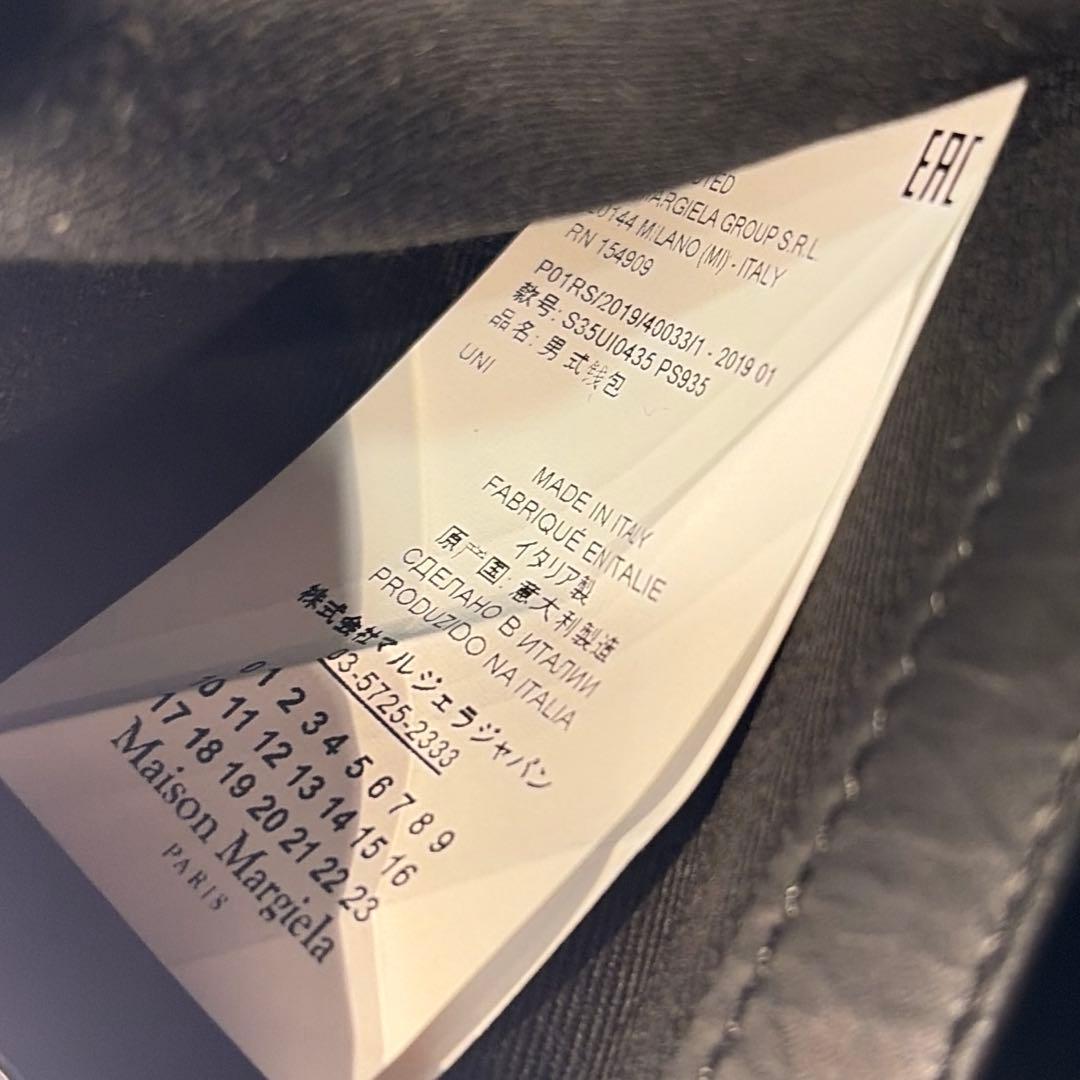 EAC
MARGIELA GROUP S.R.L.
20144 MILANO (MI) - ITALY
RN 154909
P01RS/2019/40033/1 - 2019 01
款号: S35UI0435 PS935
品名: 男式钱包
UNI
MADE IN ITALY
FABRIQUÉ EN ITALIE
イタリア製
原产国: 意大利製造
СДЕЛАНО В ИТАЛИИ
PRODUZIDO NA ITALIA
株式会社マルジェラジャパン
03-5725-2333
01 2 3 4 5 6 7 8 9
10 11 12 13 14 15 16
17 18 19 20 21 22 23
Maison Margiela
PARIS